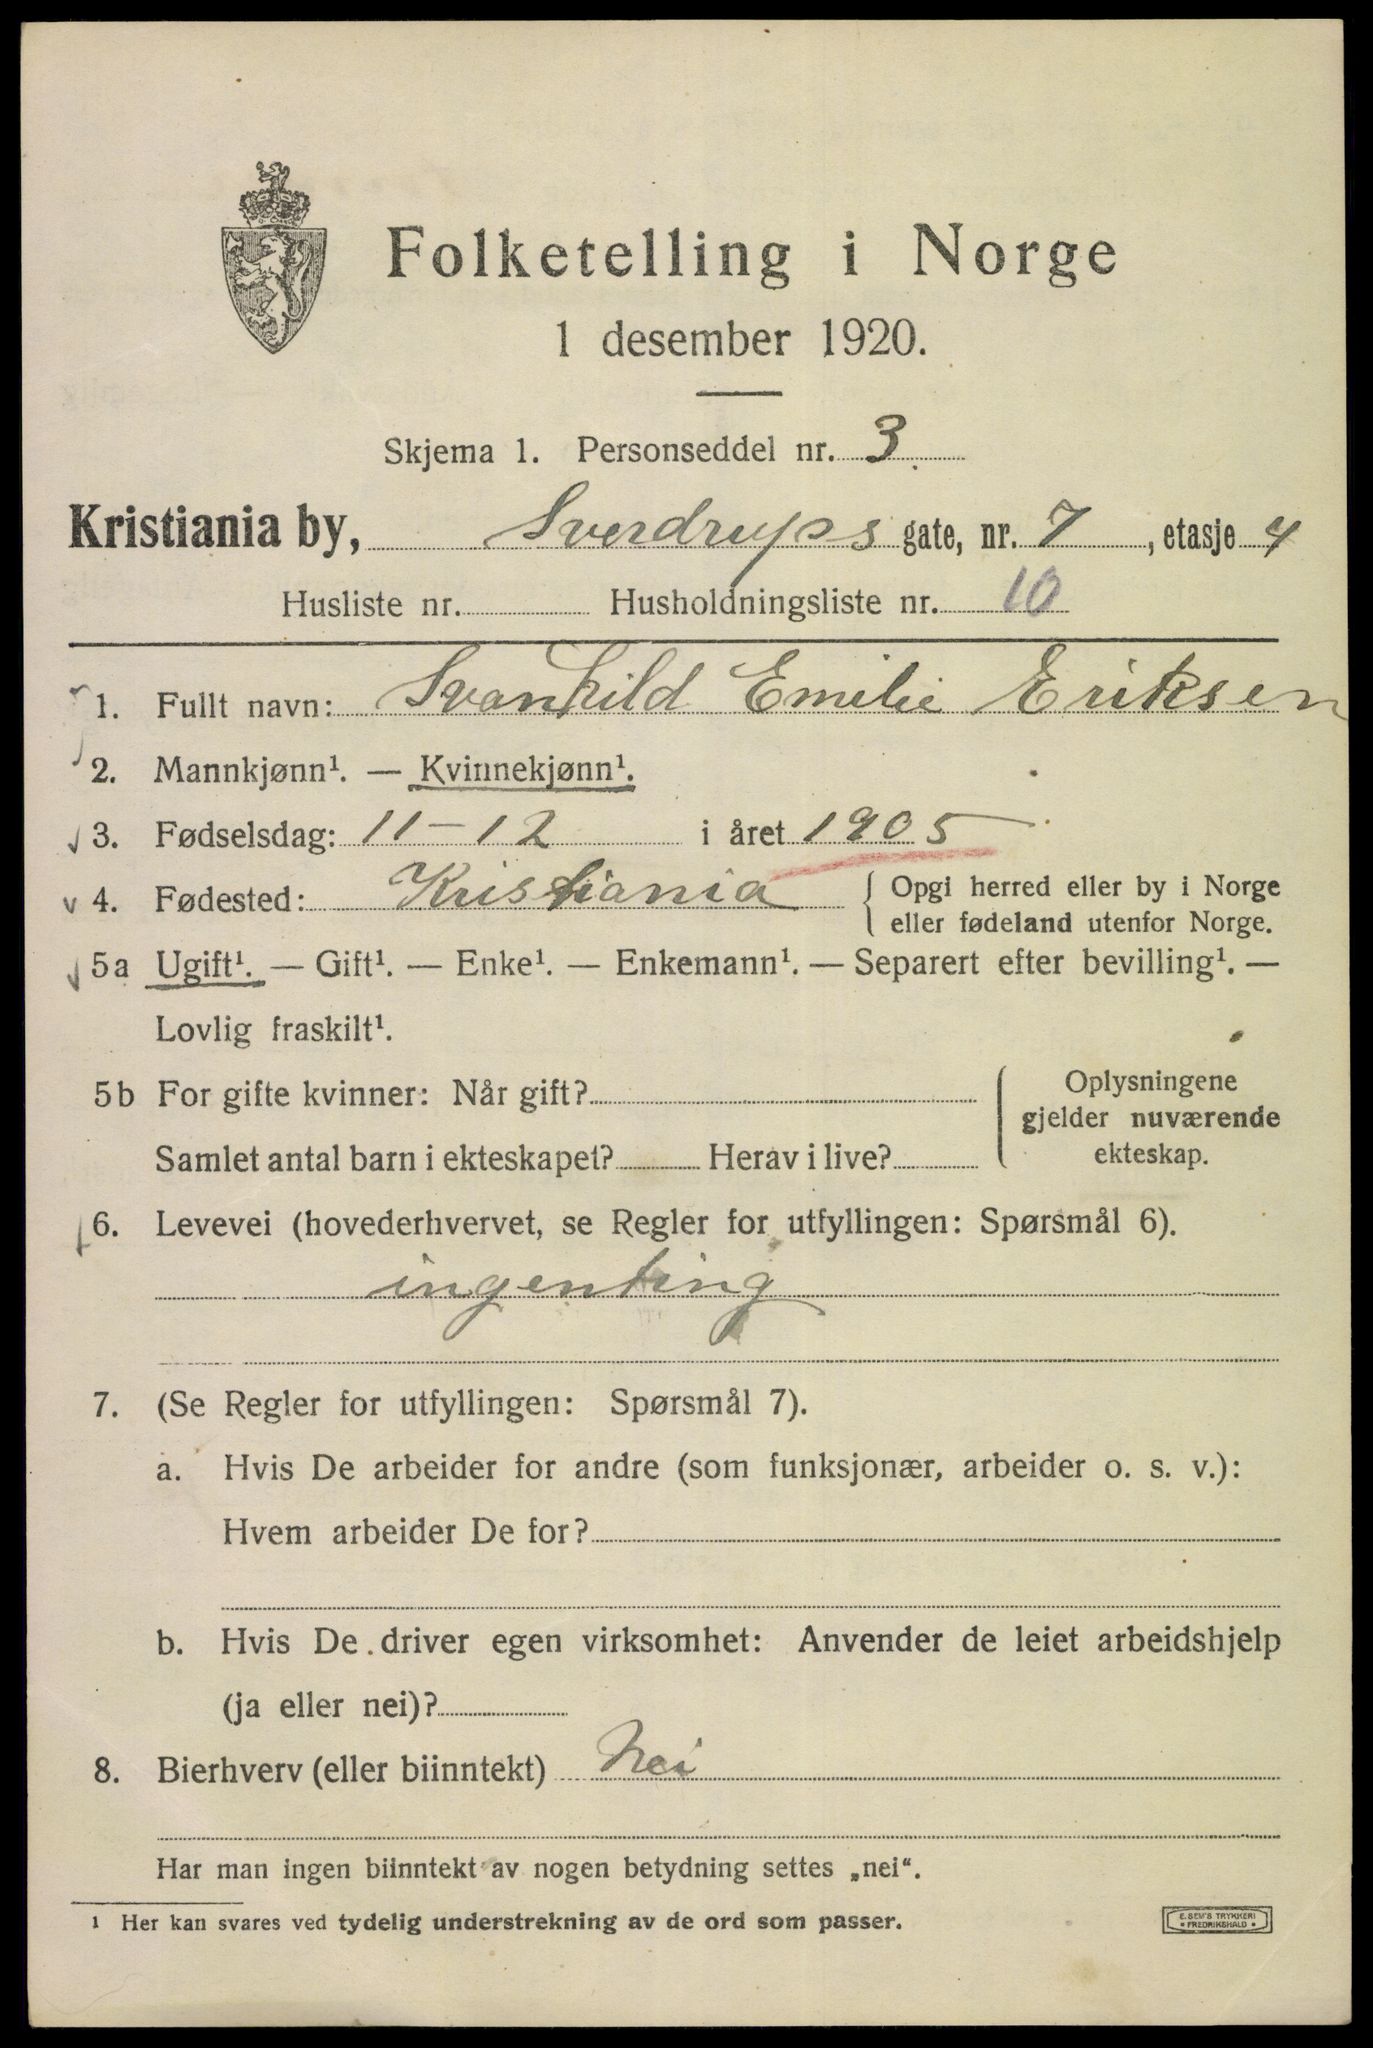 Folketelling i Norge
1 desember 1920.
Skjema 1. Personseddel nr. 3
Kristiania by, Sverdrups gate, nr. 7, etasje 4
Husliste nr. Husholdningsliste nr. 10
1. Fullt navn: Svanhild Emilie Eriksen
2. Mannkjønn¹. — Kvinnekjønn¹.
3. Fødselsdag: 11-12 i året 1905
4. Fødested: Kristiania { Opgi herred eller by i Norge
eller fødeland utenfor Norge.
5a Ugift¹. — Gift¹. — Enke¹. — Enkemann¹. — Separert efter bevilling¹. —
Lovlig fraskilt¹.
5b For gifte kvinner: Når gift? { Oplysningene
gjelder nuværende
Samlet antal barn i ekteskapet? Herav i live? ekteskap.
6. Levevei (hovederhvervet, se Regler for utfyllingen: Spørsmål 6).
ingenting
7. (Se Regler for utfyllingen: Spørsmål 7).
a. Hvis De arbeider for andre (som funksjonær, arbeider o. s. v.):
Hvem arbeider De for?
b. Hvis De driver egen virksomhet: Anvender de leiet arbeidshjelp
(ja eller nei)?
8. Bierhverv (eller biinntekt) Nei
Har man ingen biinntekt av nogen betydning settes „nei“.
¹ Her kan svares ved tydelig understrekning av de ord som passer.
E. SEM'S TRYKKERI
• FREDRIKSHALD •